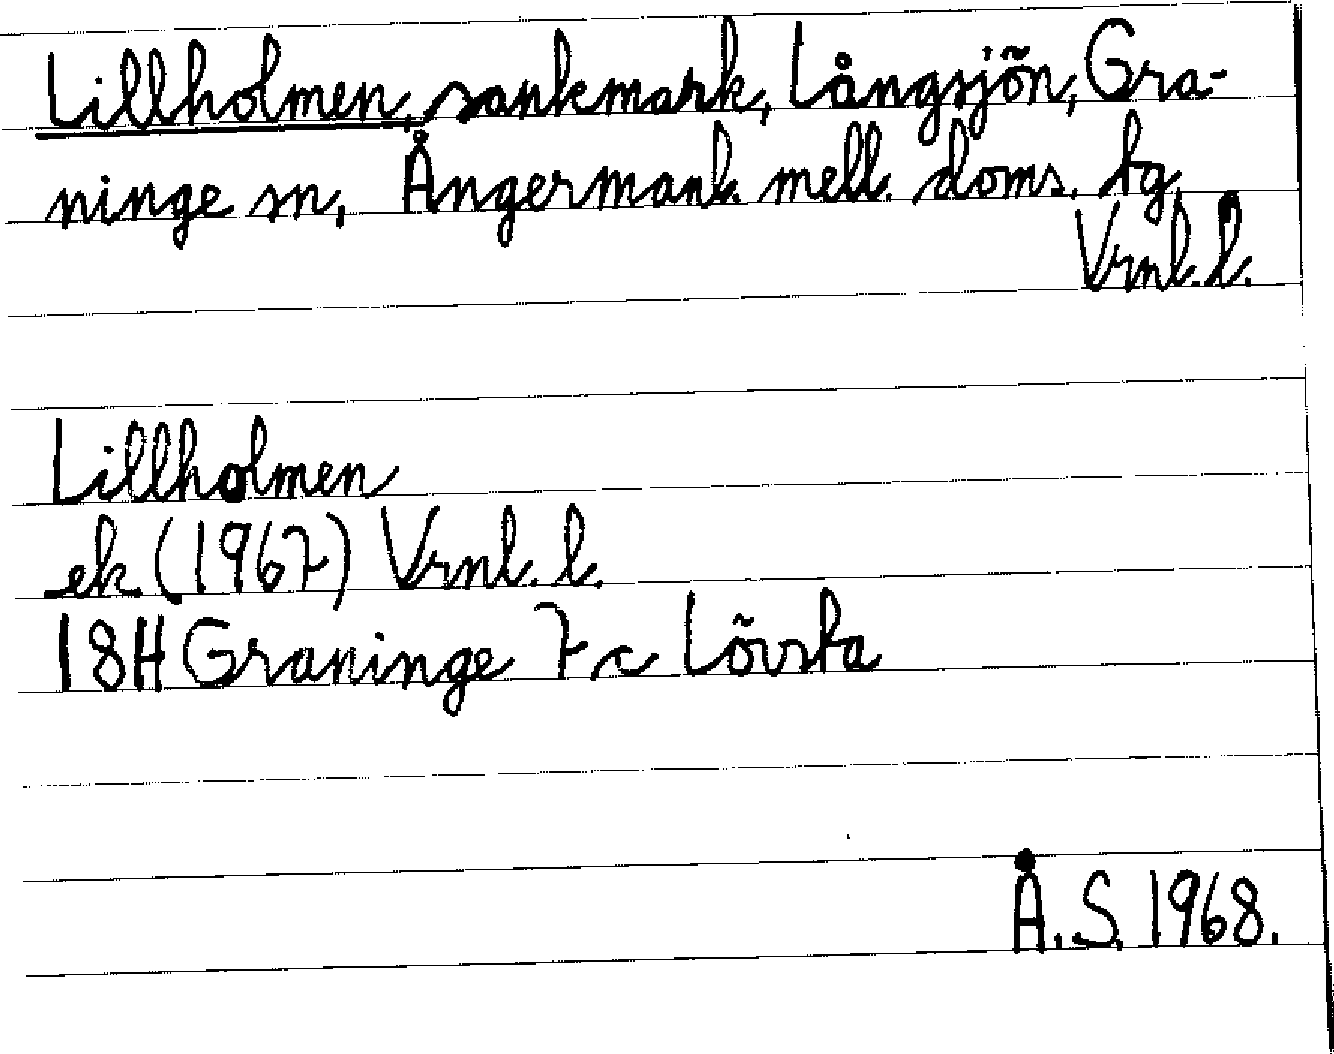 Lillholmen, sankmark, Långsjön, Gra-
ninge sn, Ångermanl. mell. doms. tg.
Vrnl. l.
Lillholmen
ek (1967) Vrnl. l.
18H Graninge 7 c Lövsta
Å. S. 1968.